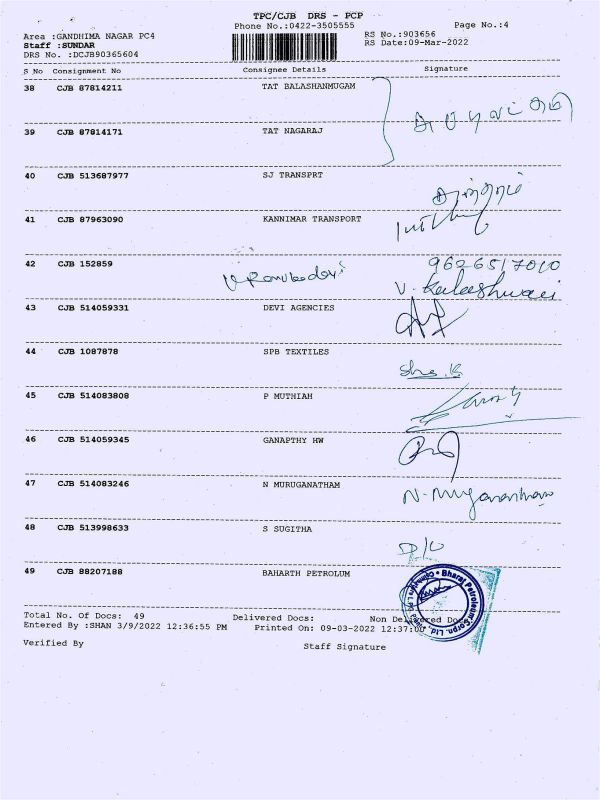 TPC/CJB DRS - PCP
Phone No.:0422-3505555
Page No.:4
Area :GANDHIMA NAGAR PC4
RS No.:903656
Staff :SUNDAR
RS Date:09-Mar-2022
DRS No. :DCJB90365604
S No Consignment No Consignee Details Signature
38 CJB 87814211 TAT BALASHANMUGAM
39 CJB 87814171 TAT NAGARAJ
40 CJB 513687977 SJ TRANSPRT
41 CJB 87963090 KANNIMAR TRANSPORT
42 CJB 152859 9626517010
V. Kaleeshwari
43 CJB 514059331 DEVI AGENCIES
44 CJB 1087878 SPB TEXTILES
45 CJB 514083808 P MUTHIAH
46 CJB 514059345 GANAPTHY HW
47 CJB 514083246 N MURUGANATHAM
48 CJB 513998633 S SUGITHA
49 CJB 88207188 BAHARTH PETROLUM
Bharat Petroleum Corpn. Ltd.
Total No. Of Docs: 49 Delivered Docs: Non Delivered Docs
Entered By :SHAN 3/9/2022 12:36:55 PM Printed On: 09-03-2022 12:37:00
Verified By Staff Signature